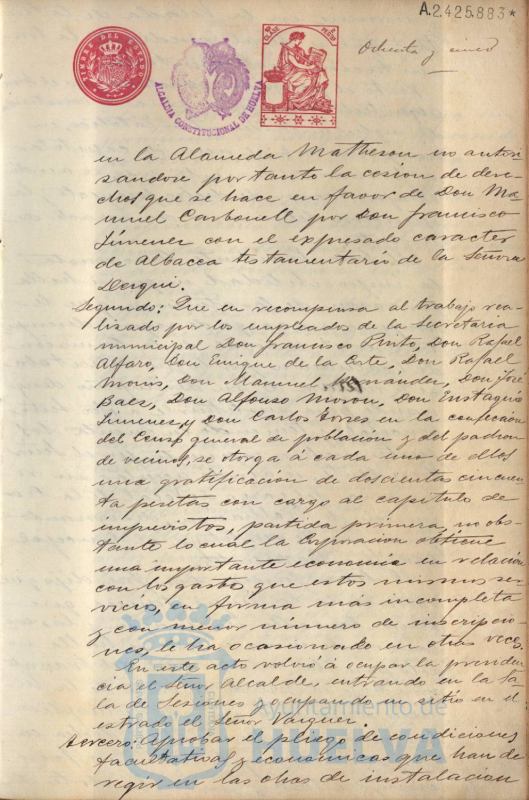 A.2.425.883*
TIMBRE DEL ESTADO
ALCALDIA CONSTITUCIONAL DE HUELVA
Ochenta y cinco
en la Alameda Matheson no autori
sandose por tanto la cesion de dere-
chos que se hace en favor de Don Ma-
nuel Carbonell por Don Francisco
Jimenez con el expresado caracter
de Albacea testamentario de la Señora
Segundo: Que en recompensa al trabajo rea-
lizado por los empleados de la Secretaria
municipal Don Francisco Pinto, Don Rafael
Alfaro, Don Enrique de la Corte, Don Rafael
Monis, Don Manuel Hernández, Don José
Baez, Don Alfonso Moron, Don Eustaquio
Jimenez, y Don Carlos Torres en la confección
del Censo general de población y del padron
de vecinos, se otorga á cada uno de ellos
una gratificación de doscientas cincuen
ta pesetas con cargo al capitulo de
imprevistos, partida primera, no obs-
tante lo cual la Corporacion obtiene
una importante economia en relacion
con los gastos que estos mismos ser-
vicios, en forma más incompleta
y con menor número de inscripcio-
nes, le ha ocasionado en otras veces.
En este acto volvió á ocupar la presiden-
cia el señor Alcalde, entrando en la Sa-
la de Sesiones y ocupando un sitio en el
estrado el Señor Vazquez.
tercero: Aprobar el pliego de condiciones
facultativas y economicas que han de
regir en las obras de instalacion
Ayuntamiento de
HUELVA